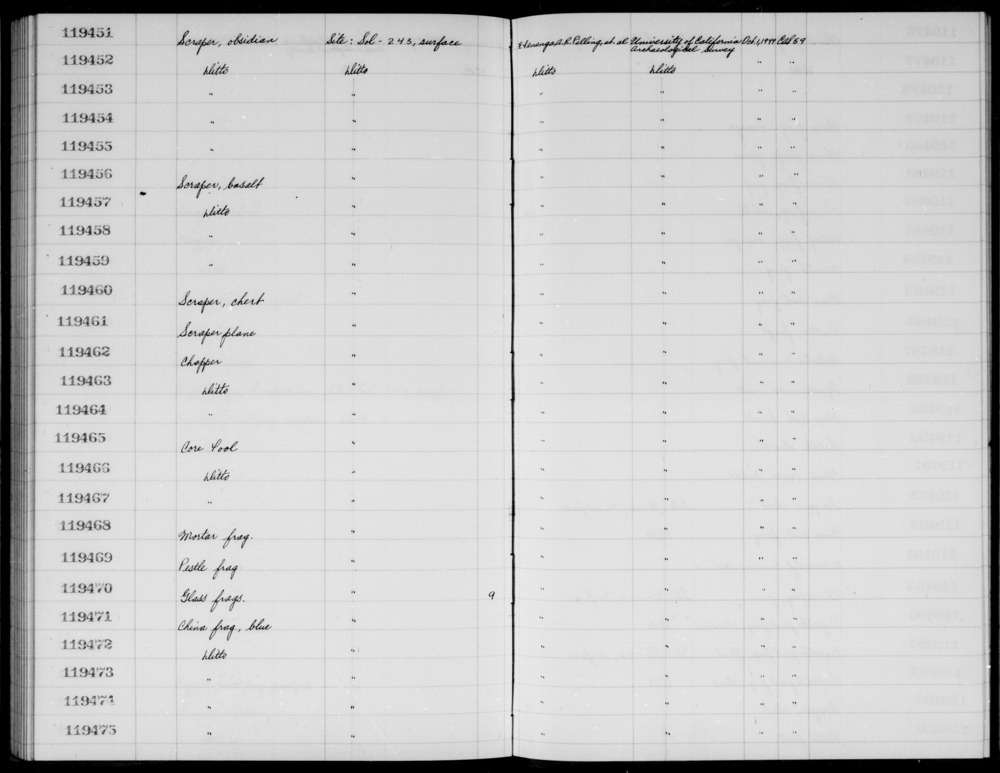 119451 Scraper, obsidian Site: Sol - 243, surface A. R. Pilling, et al University of California Archaeological Survey Oct 1, 1949 Cal 59
119452 Ditto Ditto Ditto Ditto " "
119453 " " " " " "
119454 " " " " " "
119455 " " " " " "
119456 Scraper, basalt " " " " "
119457 Ditto " " " " "
119458 " " " " " "
119459 " " " " " "
119460 Scraper, chert " " " " "
119461 Scraper plane " " " " "
119462 Chopper " " " " "
119463 Ditto " " " " "
119464 " " " " " "
119465 Core tool " " " " "
119466 Ditto " " " " "
119467 " " " " " "
119468 Mortar frag. " " " " "
119469 Pestle frag " " " " "
119470 Glass frags. " 9 " " " "
119471 China frag, blue " " " " "
119472 Ditto " " " " "
119473 " " " " " "
119474 " " " " " "
119475 " " " " " "